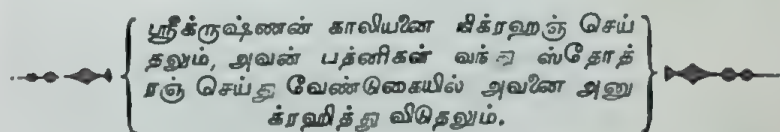 ஸ்ரீக்ருஷ்ணன் காலியனை நிக்ரஹஞ் செய்
தலும், அவன் பத்னிகள் வந்து ஸ்தோத்
ரஞ் செய்து வேண்டுகையில் அவனை அனு
க்ரஹித்து விடுதலும்.